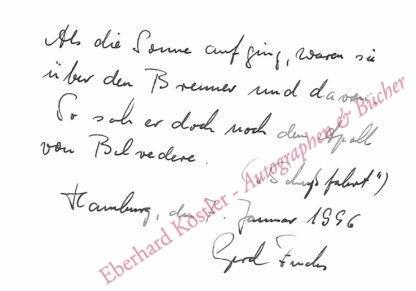 Als die Sonne aufging, waren sie
über den Brenner und davon.
So sah er doch noch den Apoll
von Belvedere.
("Schußfahrt")
Hamburg, den 2. Januar 1996
Gerd Fuchs
Eberhard Köstler - Autographen & Bücher